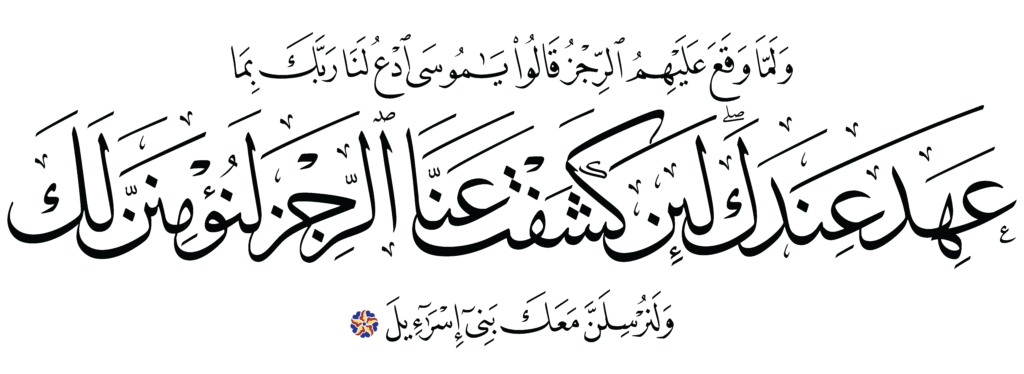 وَلَمَّا وَقَعَ عَلَيْهِمُ ٱلرِّجْزُ قَالُوا۟ يَـٰمُوسَى ٱدْعُ لَنَا رَبَّكَ بِمَا
عَهِدَ عِندَكَ ۖ لَئِن كَشَفْتَ عَنَّا ٱلرِّجْزَ لَنُؤْمِنَنَّ لَكَ
وَلَنُرْسِلَنَّ مَعَكَ بَنِىٓ إِسْرَٰٓءِيلَ